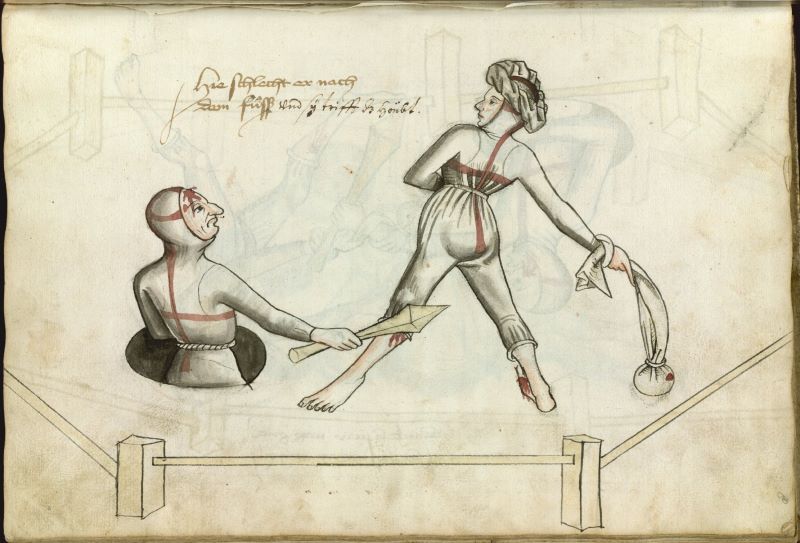 Hie schlecht er nach
dem fůß und sy trifft dz höubt.